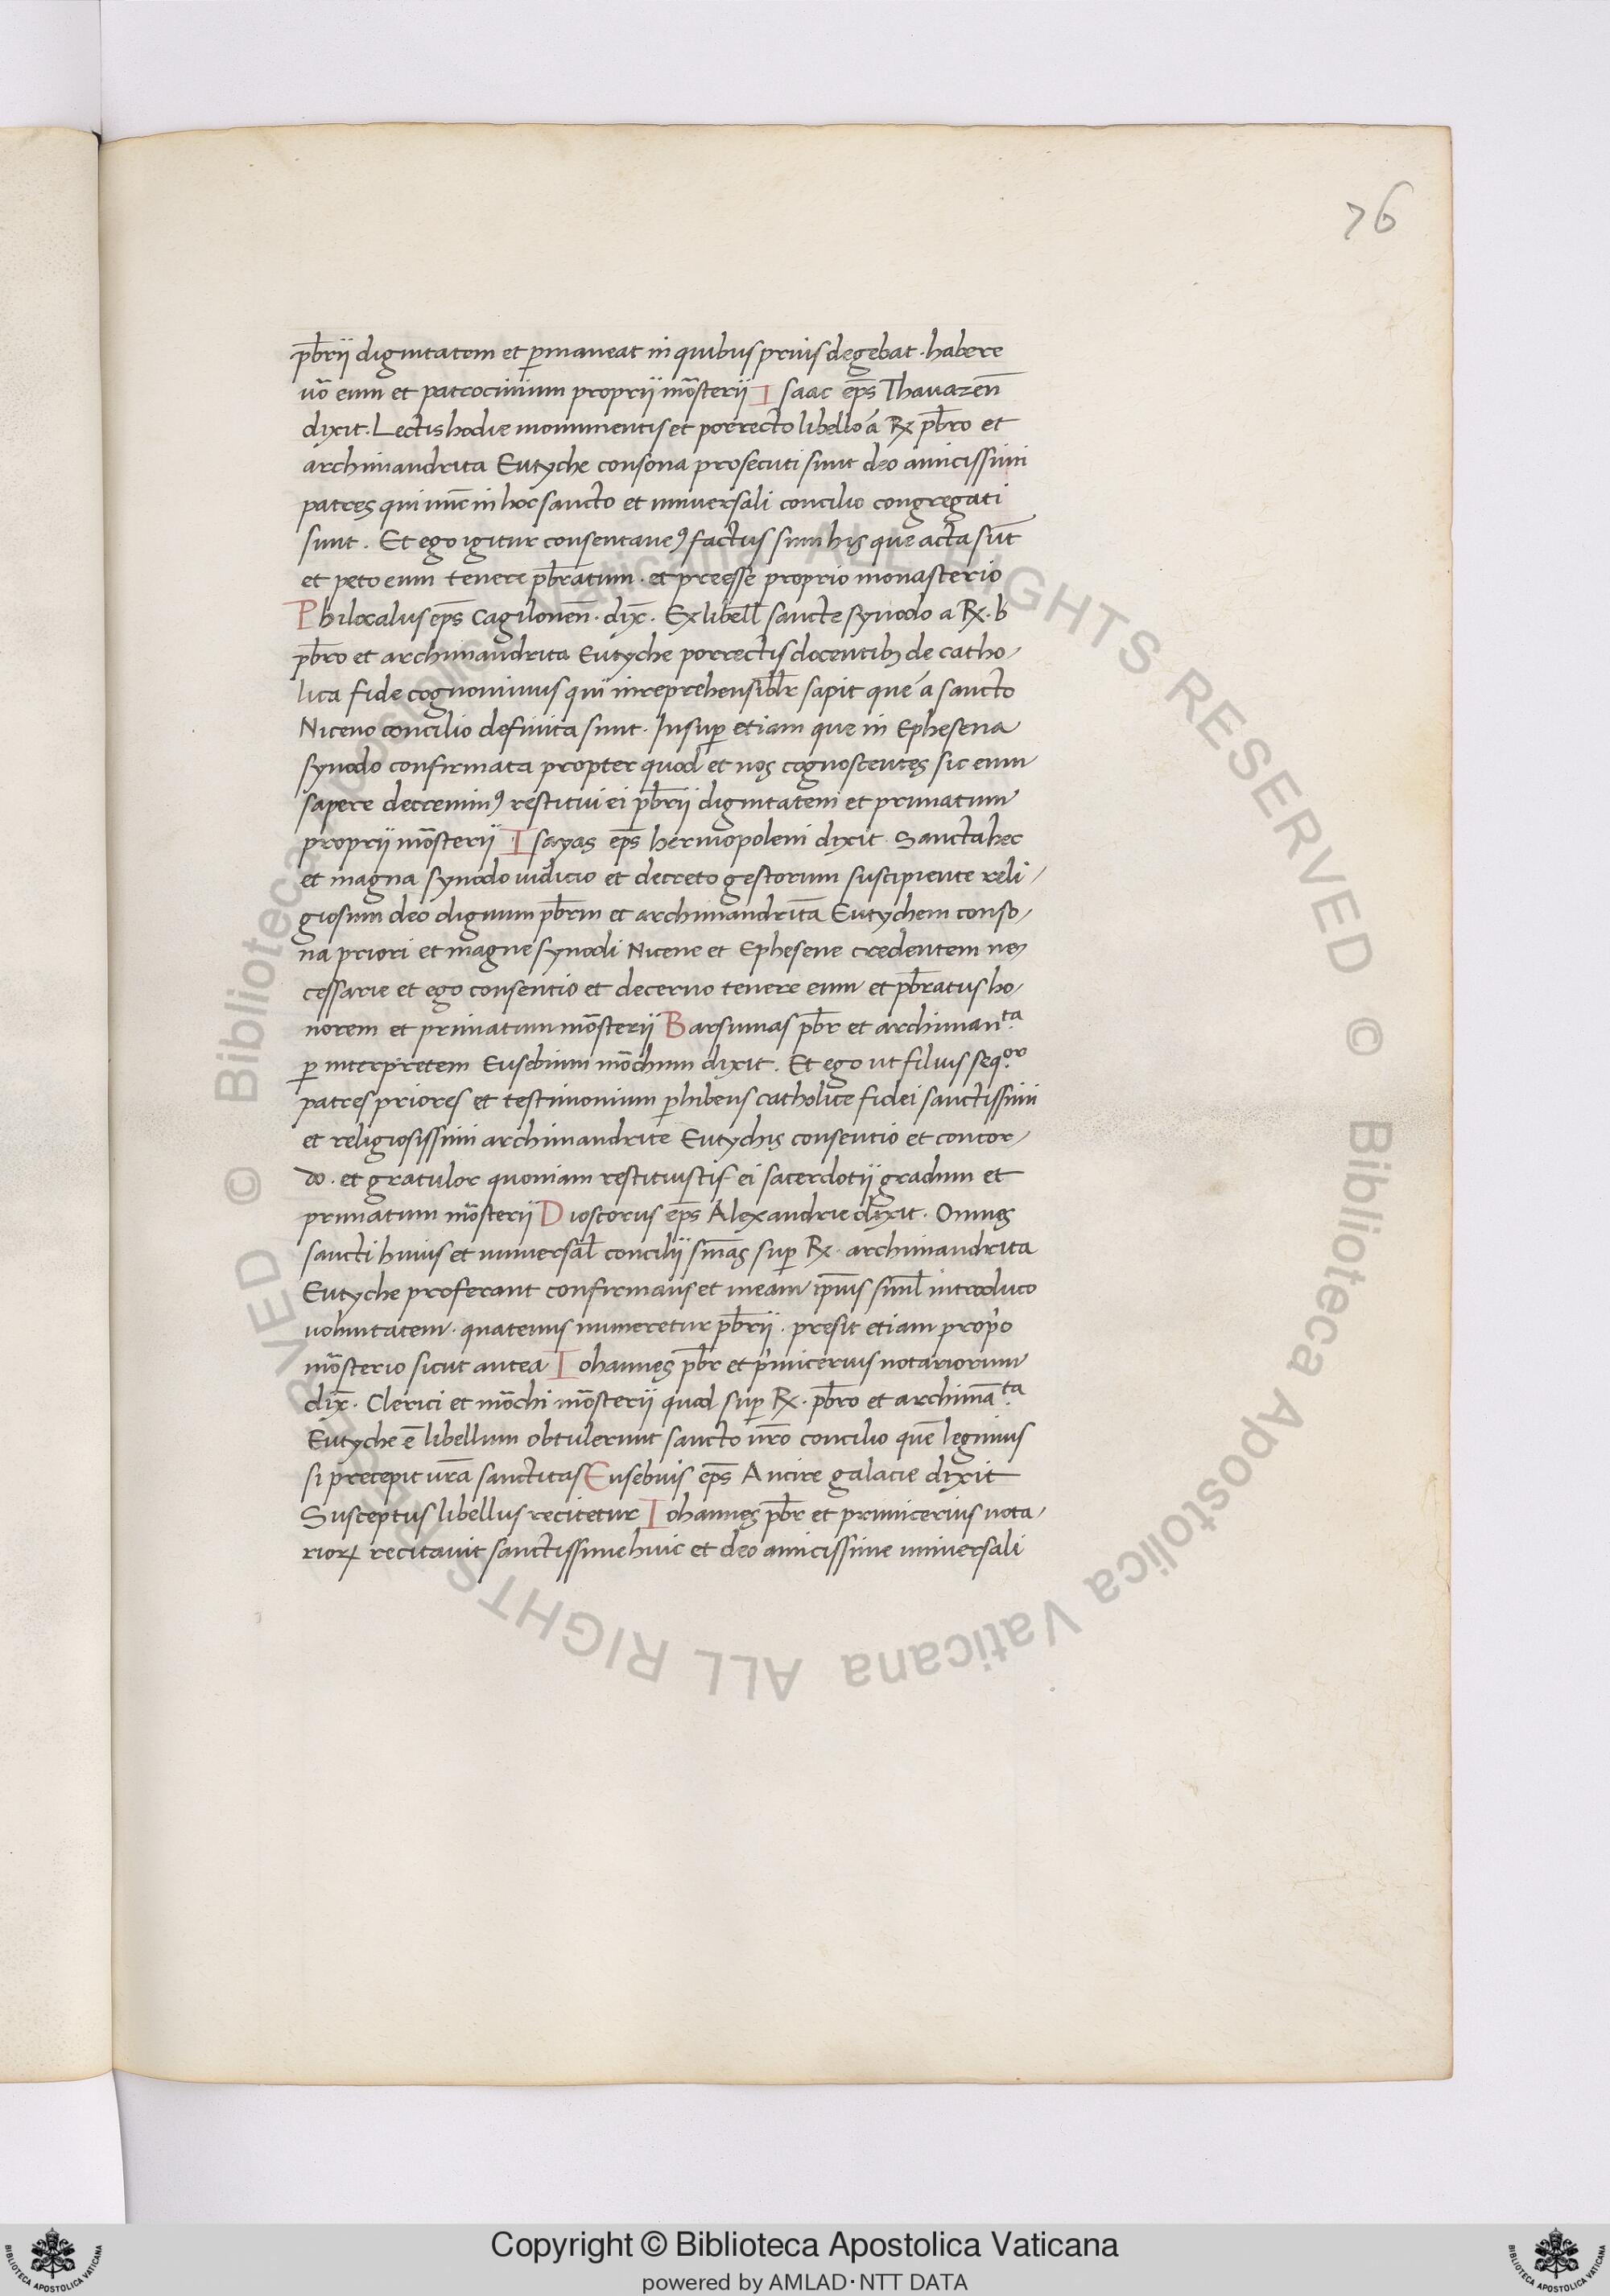 76
p̄brii dignitatem et ꝑmaneat in quibus prius degebat · habere
uō eum et patrocinium proprii mōsterii Isaac ep̄s Thauazen̄
dixit. Lectis hodie monumentis et porrecto libello á Rx p̄bro et
archimandrita Eutyche consona prosecuti sunt deo amicissimi
patres qui nūc in hoc sancto et uniuersali concilio congregati
sunt. Et ego igitur consentaneꝰ factus sum his que acta sūt
et peto eum tenere p̄bratum · et preesse proprio monasterio
Philocalus ep̄s Cagilonen̄ · dix̄ · Ex libell̄ sancte synodo a Rx · b
p̄bro et archimandrita Eutyche porrectis docentibꝫ de catho/
lica fide cognouimus qui inreprehensibl̄r sapit que á sancto
Niceno concilio definita sunt · Insuꝑ etiam que in Ephesena
synodo confirmata propter quod et nos cognoscentes sic eum
sapere decreuimꝰ restitui ei p̄brii dignitatem et primatum
proprii mōsterii · Isayas ep̄s hermopoleni dixit · Sancta hec
et magna synodo iudicio et decreto gestorum suscipiente reli/
giosum deo dignum p̄brm et archimandritā Eutychem conso/
na priori et magne synodi Nicene et Ephesene credentem ne/
cessarie et ego consentio et decerno tenere eum et p̄bratus ho/
norem et primatum mōsterii Barsumas p̄br et archiman.ta
ꝑ interpretem Eusebium mōchum dixit. Et ego ut filius seq.or
patres priores et testimonium ꝑhibens catholice fidei sanctissimi
et religiosissimi archimandrite Eutychis consentio et concor/
do · et gratulor quoniam restituistis ei sacerdotii gradum et
primatum mōsterii Dioscorus ep̄s Alexandrie dixit · Omnes
sancti huius et uniuersal̄ concilii sn̄ias suꝑ Rx · archimandrita
Eutyche proferant confirmans et meam ip̄ius siml̄ introduco
uoluntatem · quatenus numeretur p̄brii · presit etiam prop̓o
mōsterio sicut antea Iohannes p̄br et p̓micerius notariorum
dix̄ · Clerici et mōchi mōsterii quod suꝑ Rx · p̄bro et archimā.ta
Eutyche ē libellum obtulerunt sancto ur̄o concilio quē legimus
si precepit ur̄a sanctitas Eusebius ep̄s Ancire galacie dixit
Susceptus libellus recitetur Iohannes p̄br et primicerius nota/
rioꝝ recitauit sanctissime huic et deo amicissime uniuersali
© Biblioteca Apostolica Vaticana ALL RIGHTS RESERVED
© Biblioteca Apostolica Vaticana ALL RIGHTS RESERVED
Copyright © Biblioteca Apostolica Vaticana
powered by AMLAD·NTT DATA
BIBLIOTECA APOSTOLICA VATICANA
BIBLIOTECA APOSTOLICA VATICANA